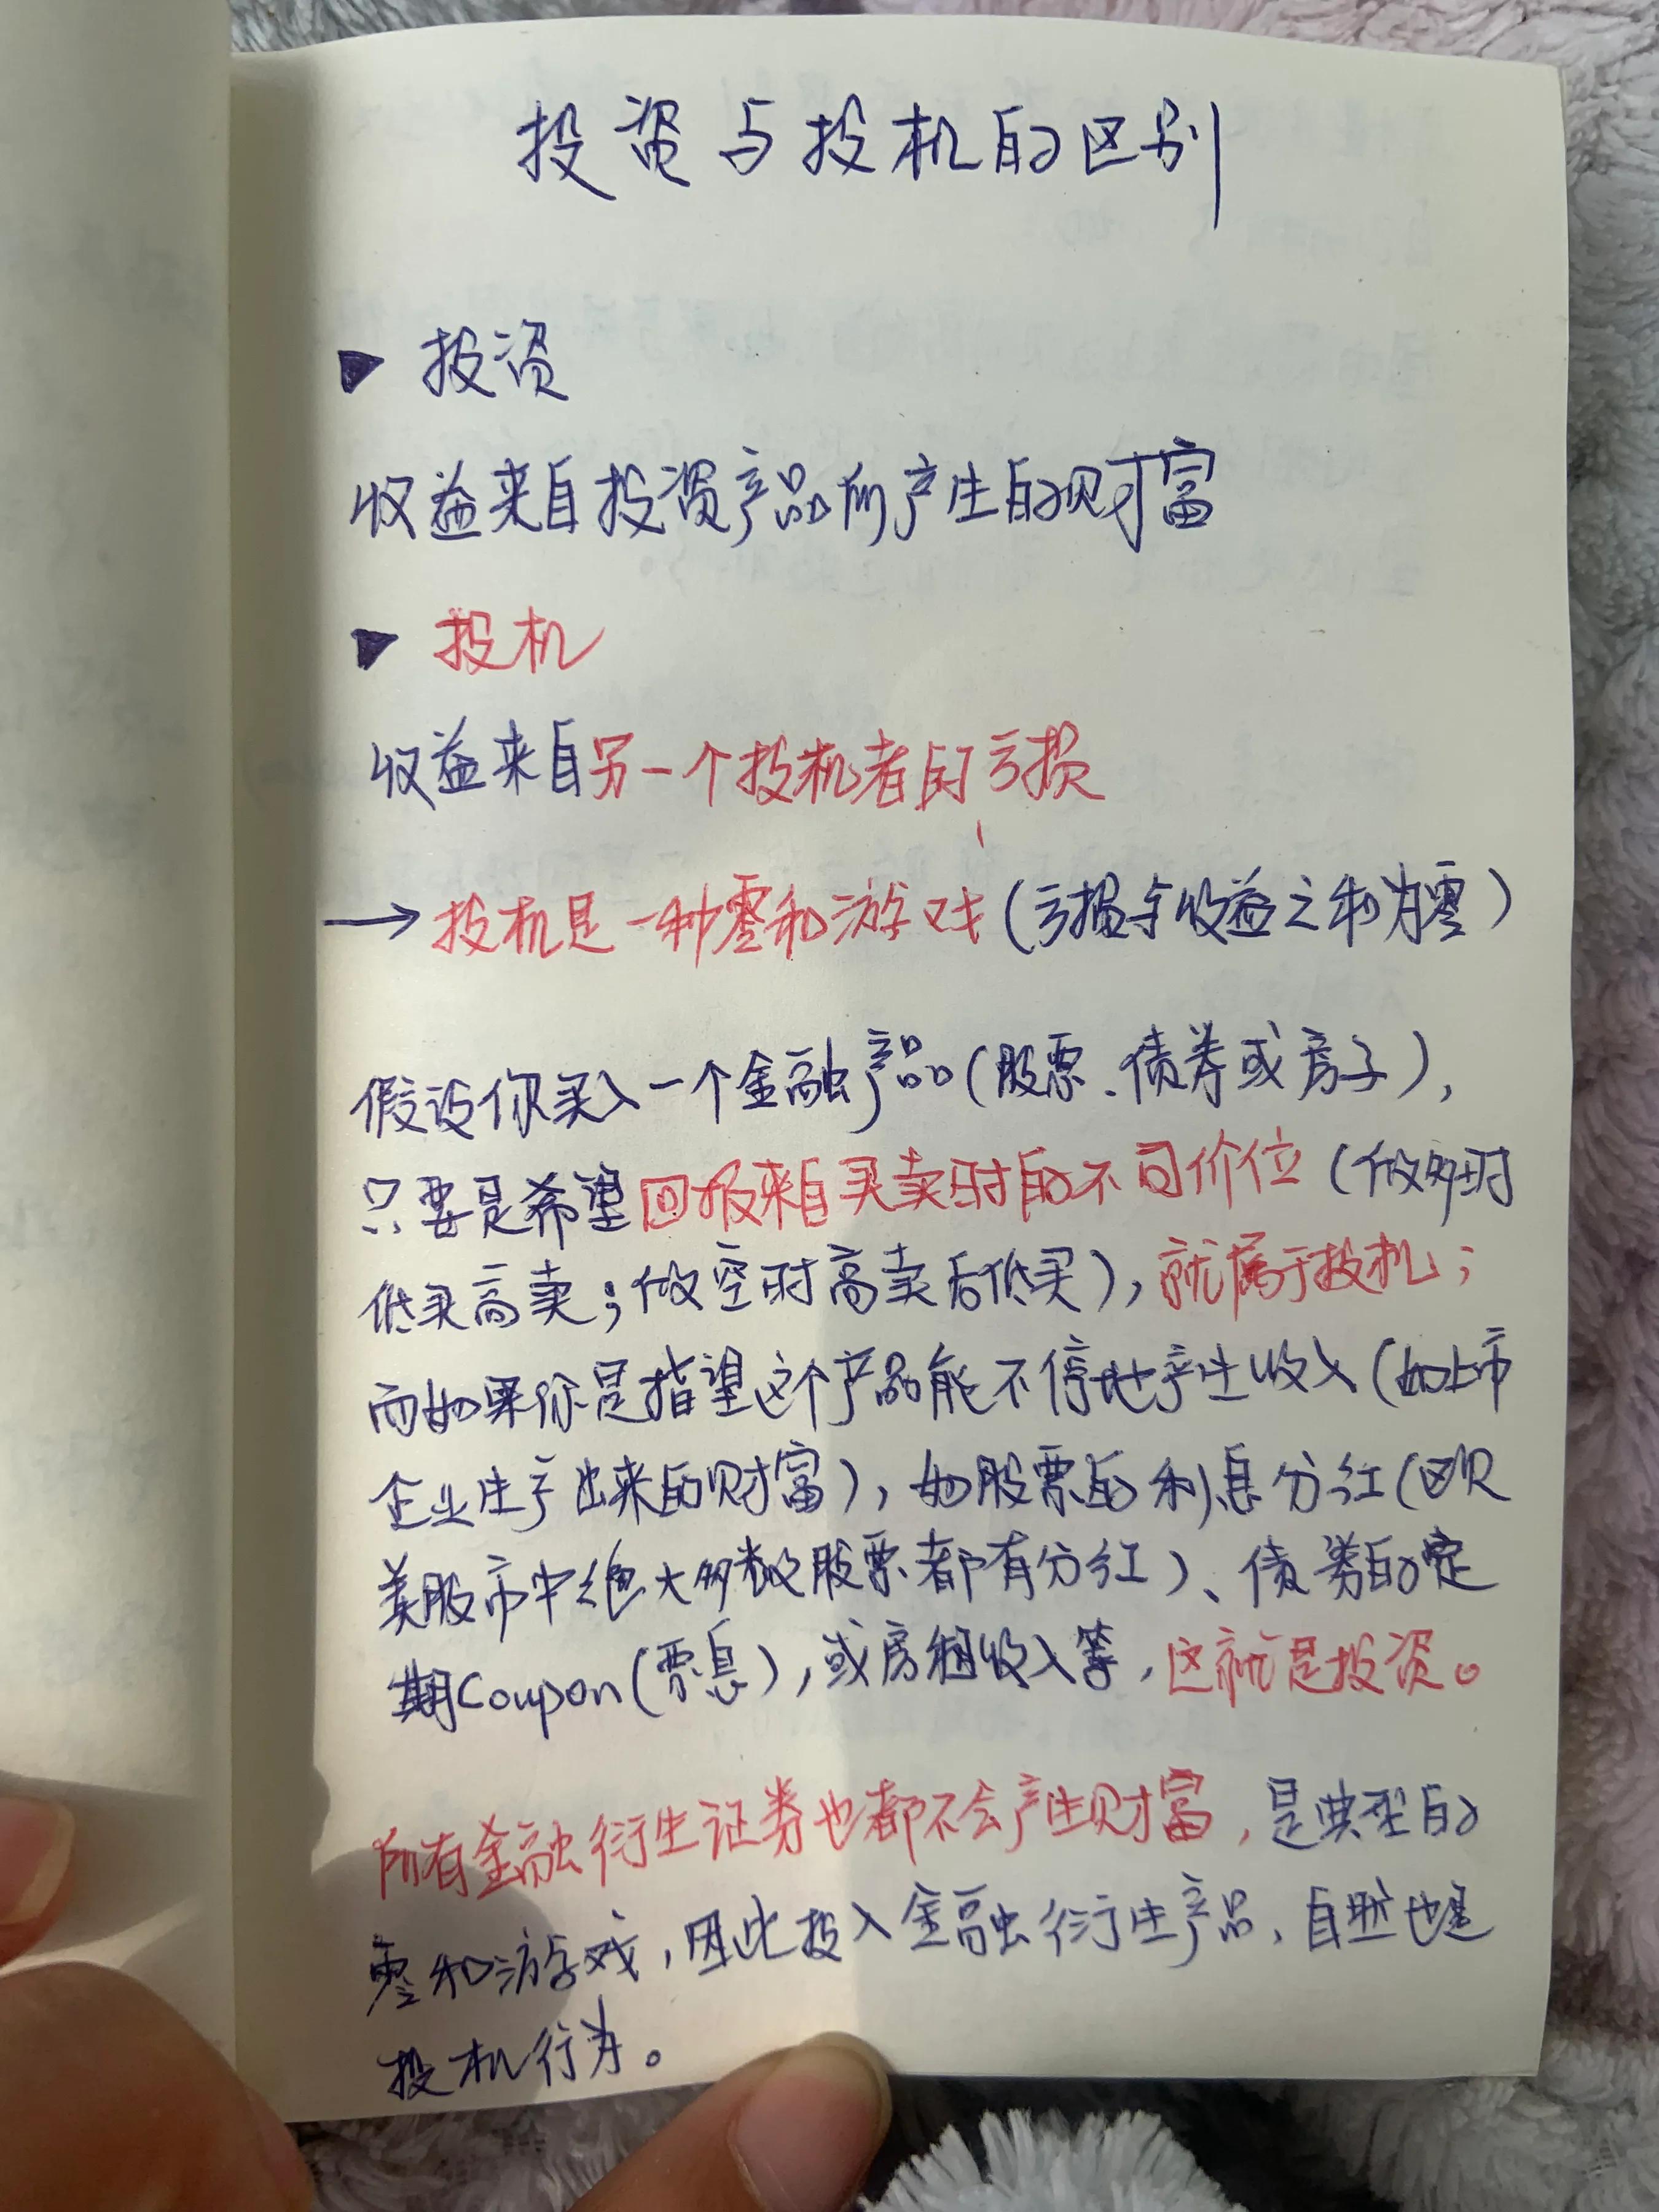 投资与投机的区别
▶ 投资
收益来自投资产品所产生的财富
▶ 投机
收益来自另一个投机者的亏损
→ 投机是一种零和游戏(亏损与收益之和为零)
假设你买入一个金融产品(股票、债券或房子),
只要是希望回报来自买卖时的不同价位(做多时
低买高卖;做空时高卖后低买),就属于投机;
而如果你是指望这个产品能不停地产生收入(如上市
企业生产出来的财富),如股票的利息分红(欧
美股市中绝大多数股票都有分红)、债券的定
期Coupon(票息),或房租收入等,这就是投资。
所有金融衍生证券也都不会产生财富,是典型的
零和游戏,因此投入金融衍生产品,自然也是
投机行为。